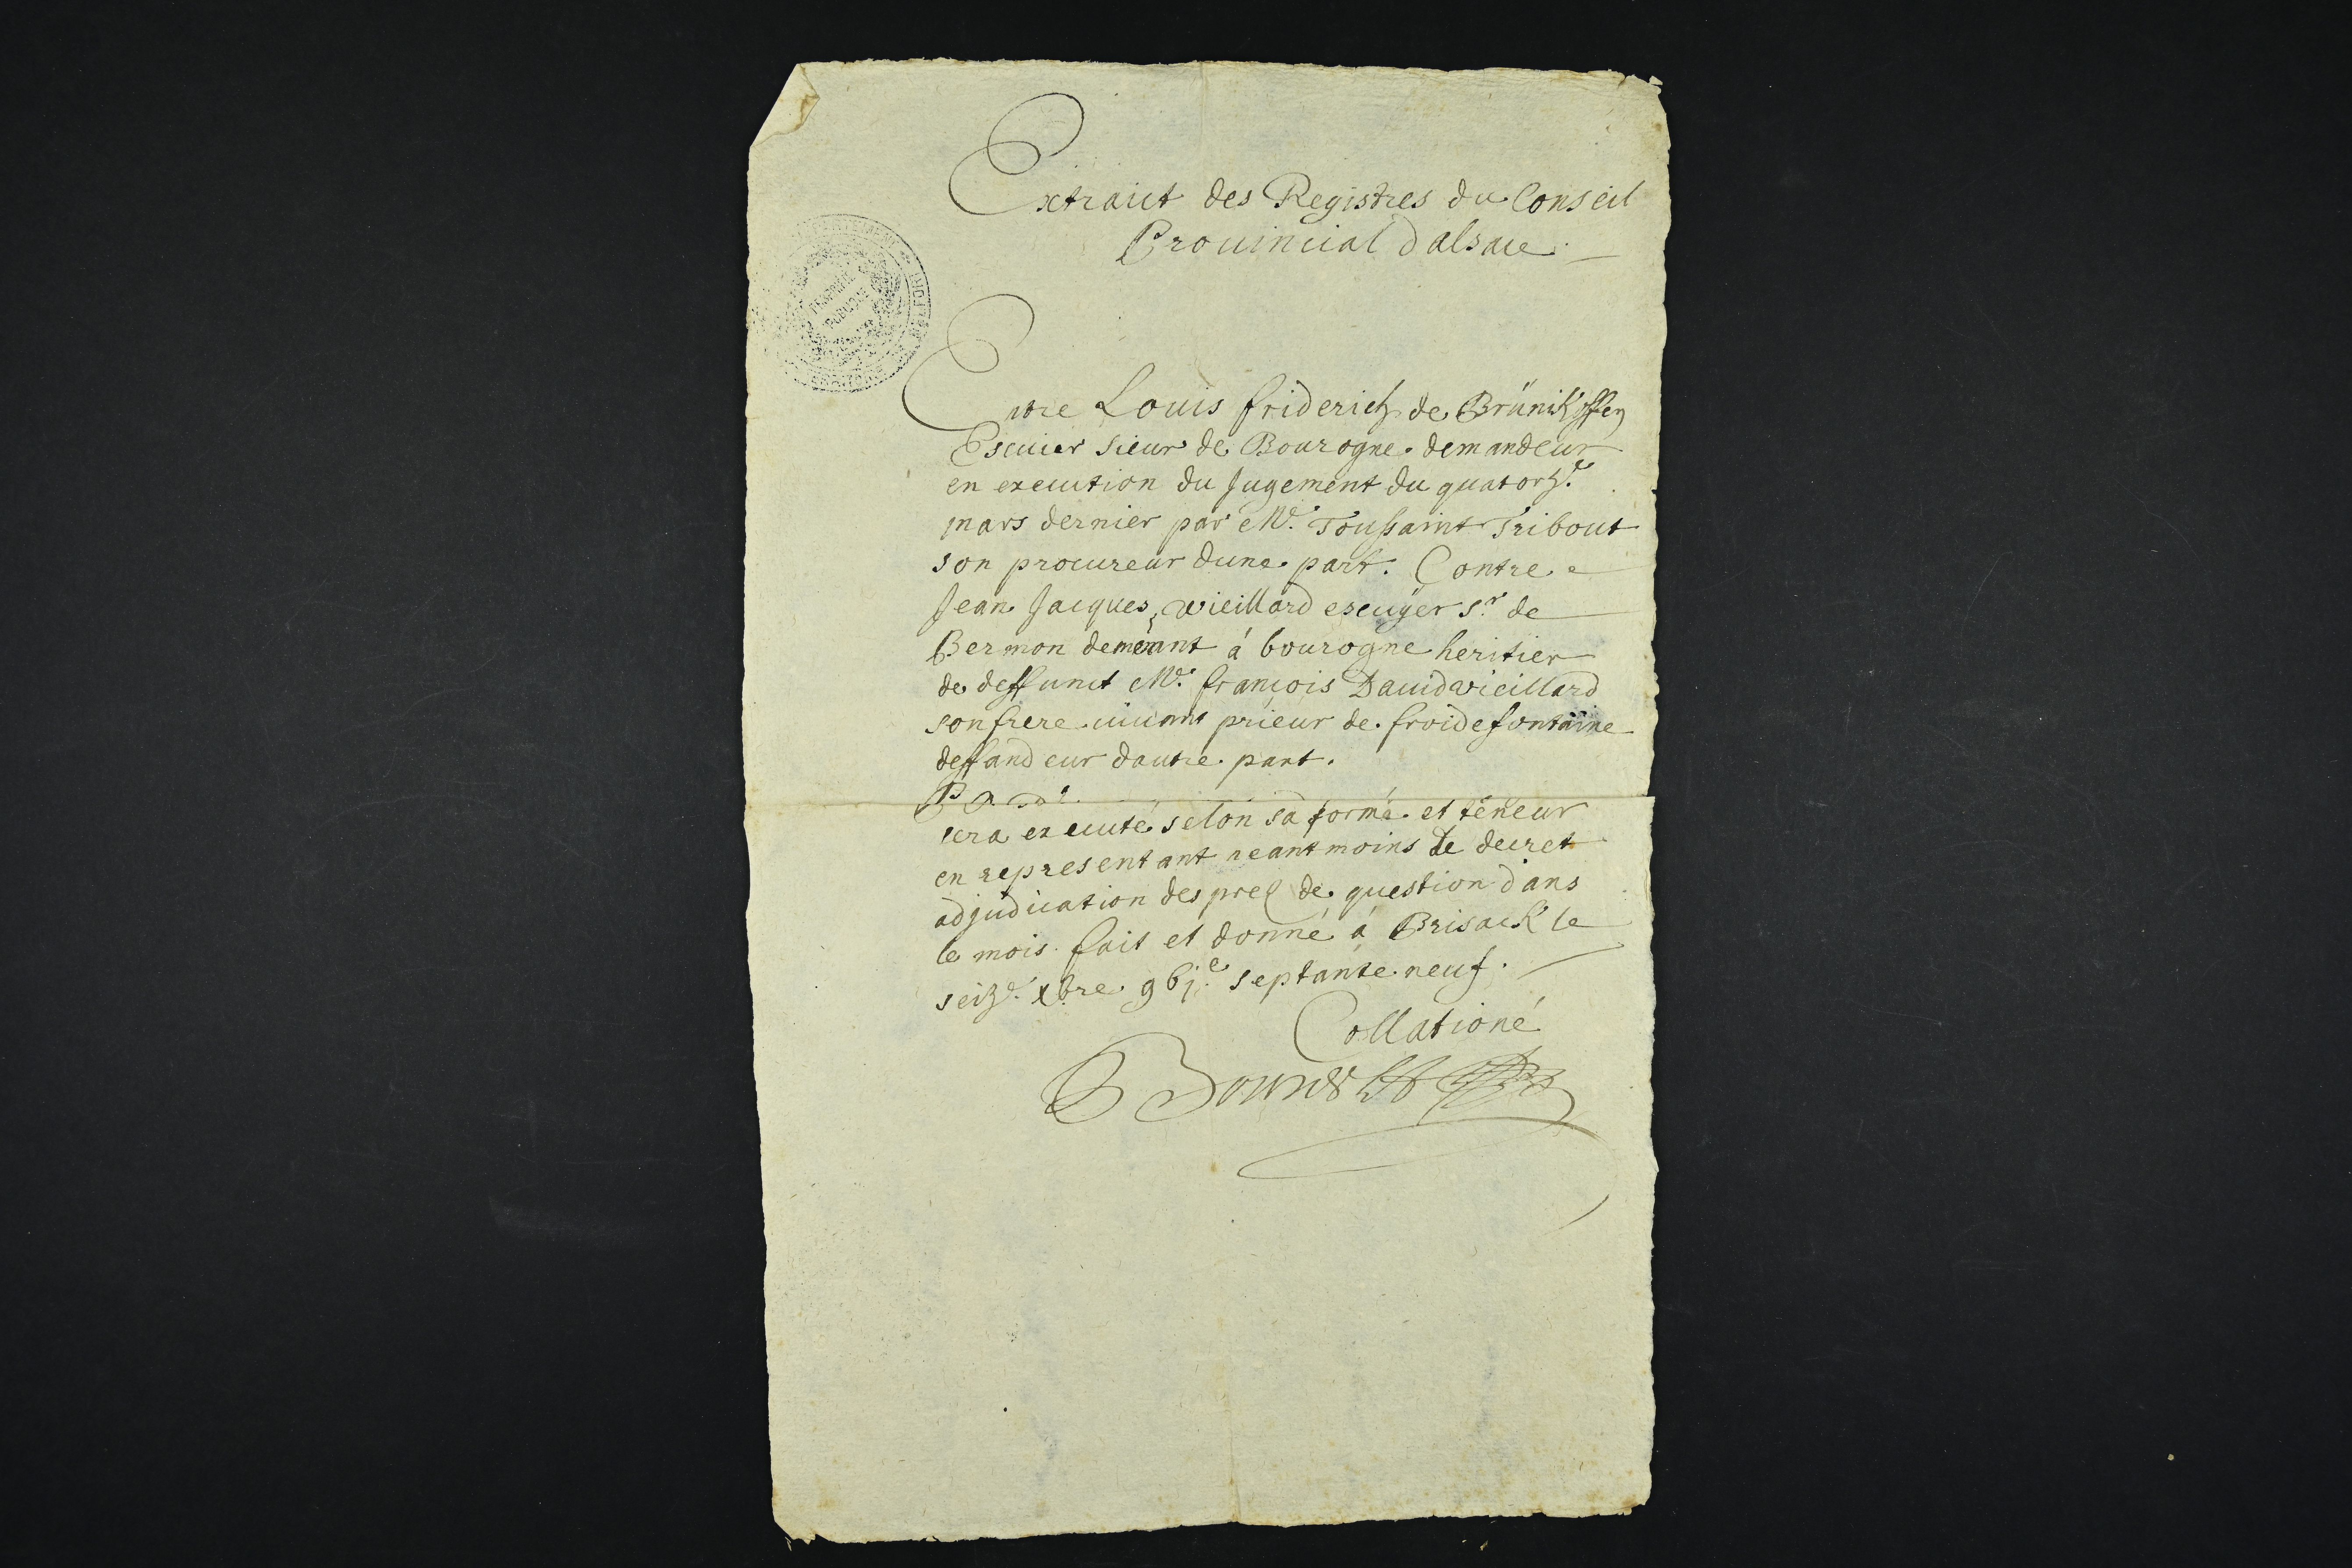 Extraict des Registres du Conseil
Prouincial dalsace
Entre Louis friderich de Brünikhoffen
Escuier sieur de Bourogne demandeur
en execution du Jugement du quatorz.e
mars dernier par Me. Toussaint Tribout
son procureur dune part. Contre
Jean Jacques vieillard escuÿer s.r de
Bermon demeurant á bourogne heritier
de deffunct Me. françois Dauid vieillard
son frere viuant prieur de froidefontaine
deffandeur dautre part.
sera executé selon sa forme et teneur
en representant neantmoins le decret
adjudication des prel de question dans
le mois. fait et donné á Brisack le
seize. xbre. 9bj.e septante neuf.
Collationé
PROPRIETE
PUBLIQUE